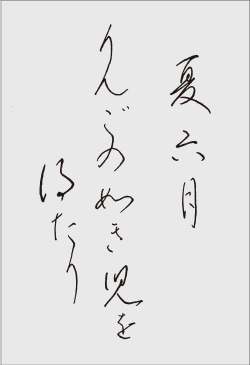 夏六月
りんごの如き児を
得たり